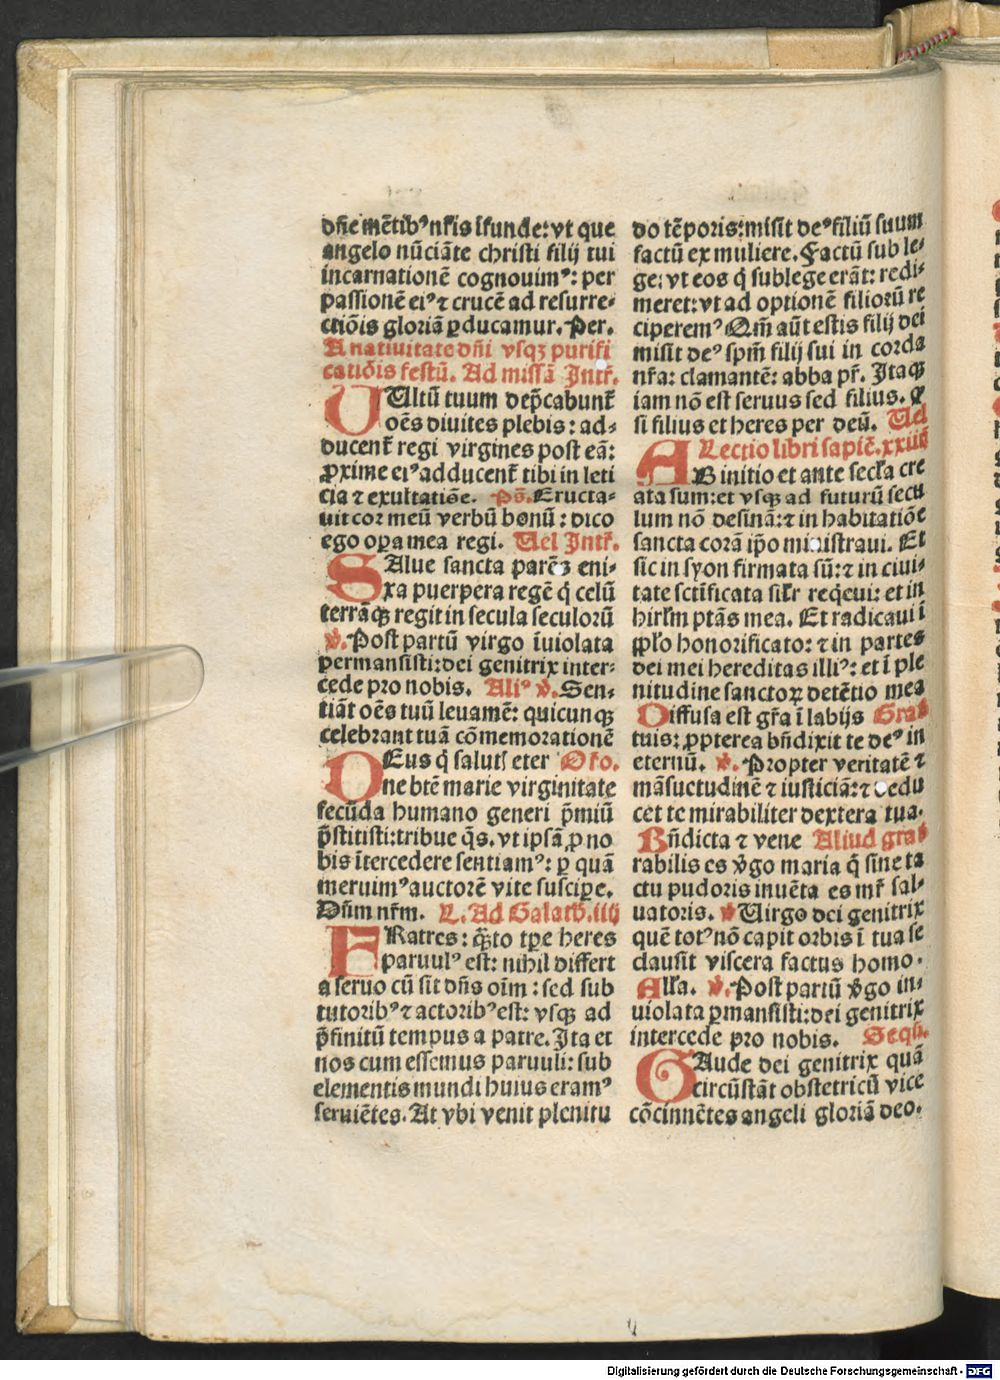 dn̄e mētibꝰ nr̄is īfunde: vt que
angelo nūciāte christi filij tui
incarnationē cognouimꝰ: per
passionē eiꝰ ⁊ crucē ad resurre-
ctiōis gloriā ꝑducamur. Per.
A natiuitate dn̄i vsqꝫ purifi
catiōis festū. Ad missā Intr̄.
VUltū tuum dep̄cabunt̄
oēs diuites plebis: ad-
ducent̄ regi virgines post eā:
ꝓxime eiꝰ adducent̄ tibi in leti
cia ⁊ exultatiōe. Ps̄. Eructa-
uit cor meū verbū bonū: dico
ego oꝑa mea regi. Uel Intr̄.
SAlue sancta parēs eni-
xa puerpera regē q̄ celū
terrāqꝫ regit in secula seculorū
v̄. Post partū virgo īuiolata
permansisti: dei genitrix inter-
cede pro nobis. Aliꝰ v̄. Sen-
tiāt oēs tuū leuamē: quicunqꝫ
celebrant tuā cōmemorationē
DEus q̄ salutꝭ eter Oŕo.
ne btē marie virginitate
fecūda humano generi p̄miū
p̄stitisti: tribue q̄s. vt ipsā ꝓ no
bis ītercedere sentiamꝰ: ꝑ quā
meruimꝰ auctorē vite suscipe.
Dūm nr̄m. L. Ad Galath̄. iiij
FRatres: q̄to tp̄e heres
paruulꝰ est: nihil differt
a seruo cū sit dn̄s oīm: sed sub
tutoribꝰ ⁊ actoribꝰ est: vsqꝫ ad
p̄finitū tempus a patre. Ita et
nos cum essemus paruuli: sub
elementis mundi huius eramꝰ
seruiētes. At vbi venit plenitu
do tēporis: misit deꝰ filiū suum
factū ex muliere. Factū sub le-
ge: vt eos q̄ sub lege erāt: redi-
meret: vt ad optionē filiorū re
ciperemꝰ Qm̄ aūt estis filij dei
misit deꝰ sp̄m filij sui in corda
nr̄a: clamantē: abba pr̄. Itaqꝫ
iam nō est seruus sed filius. Q
si filius et heres per deū. Uel
Lectio libri sapiē. xxiiij
AB initio et ante secl̄a cre
ata sum: et vsqꝫ ad futurū secu
lum nō desinā: ⁊ in habitatiōe
sancta corā ip̄o ministraui. Et
sic in syon firmata sū: ⁊ in ciui-
tate sctīficata sil̄r reqeui: et in
hirl̄m ptās mea. Et radicaui ī
pp̄lo honorificato: ⁊ in partes
dei mei hereditas illiꝰ: et ī ple
nitudine sanctoꝝ detētio mea
Diffusa est gr̄a ī labijs Gra
tuis: ꝓpterea bn̄dixit te deꝰ in
eternū. v̄. Propter veritatē ⁊
māsuetudinē ⁊ iusticiā: ⁊ dedu
cet te mirabiliter dextera tua.
Bn̄dicta ⁊ vene Aliud gra
rabilis es v̄go maria q̄ sine ta
ctu pudoris inuēta es mr̄ sal-
uatoris. v̄ Uirgo dei genitrix
quē totꝰ nō capit orbis ī tua se
clausit viscera factus homo.
All̄a. v̄. Post partū v̄go in-
uiolata ꝑmansisti: dei genitrix
intercede pro nobis. Sequ.
GAude dei genitrix quā
circūstāt obstetricū vice
cōcinnētes angeli gloriā deo.
Digitalisierung gefördert durch die Deutsche Forschungsgemeinschaft - DFG